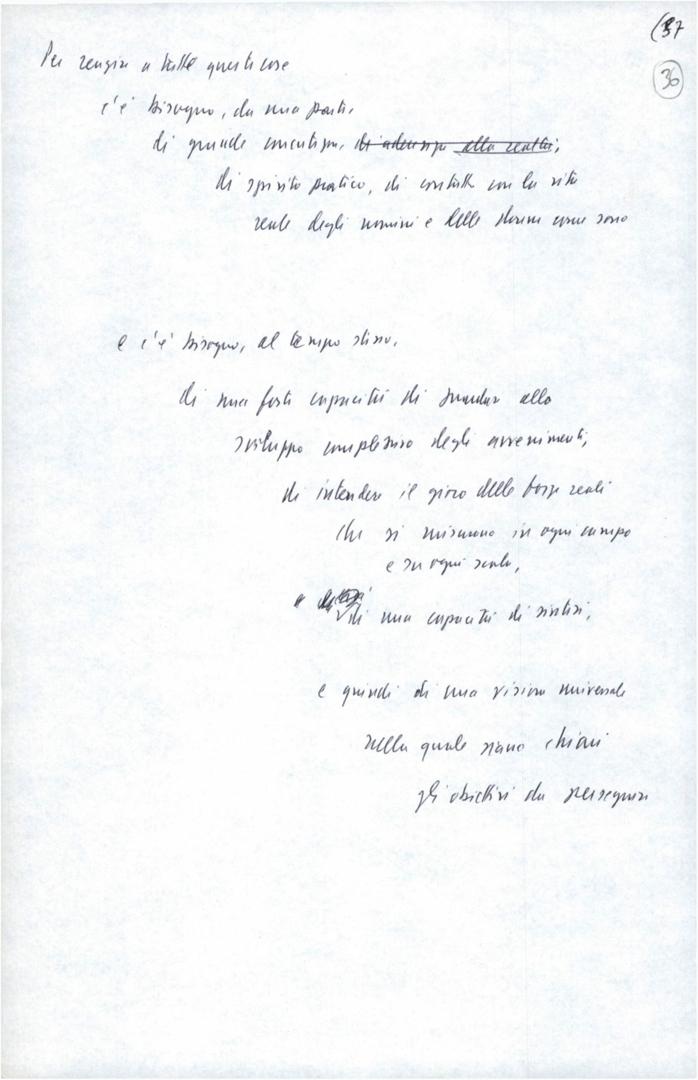 (37
36
Per reagire a tutte queste cose
c'è bisogno, da una parte,
di grande concretezza, di aderenza alla realtà;
di spirito pratico, di contatto con la vita
reale degli uomini e delle donne come sono
e c'è bisogno, al tempo stesso,
di una forte capacità di guardare allo
sviluppo complessivo degli avvenimenti,
di intendere il gioco delle forze reali
che si misurano in ogni campo
e su ogni scala,
e di una capacità di sintesi,
e quindi di una visione universale
nella quale siano chiari
gli obiettivi da perseguire